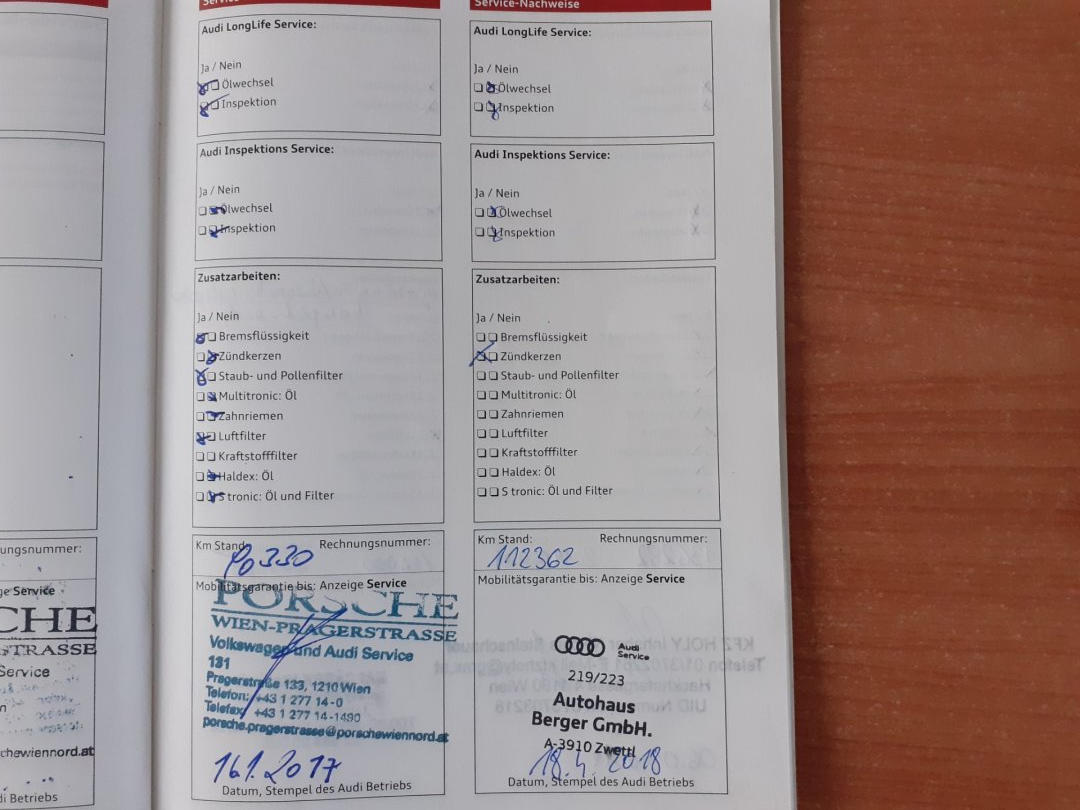 Service-Nachweise
Audi LongLife Service:
Ja / Nein
Ölwechsel
Inspektion
Audi Inspektions Service:
Ja / Nein
Ölwechsel
Inspektion
Zusatzarbeiten:
Ja / Nein
Bremsflüssigkeit
Zündkerzen
Staub- und Pollenfilter
Multitronic: Öl
Zahnriemen
Luftfilter
Kraftstofffilter
Haldex: Öl
S tronic: Öl und Filter
Km Stand: Rechnungsnummer:
Mobilitätsgarantie bis: Anzeige Service
PORSCHE
WIEN-PRAGERSTRASSE
Volkswagen und Audi Service
181
Pragerstraße 133, 1210 Wien
Telefon: +43 1 277 14-0
Telefax: +43 1 277 14-1490
porsche.pragerstrasse@porschewiennord.at
16.1.2017
Datum, Stempel des Audi Betriebs
Audi LongLife Service:
Ja / Nein
Ölwechsel
Inspektion
Audi Inspektions Service:
Ja / Nein
Ölwechsel
Inspektion
Zusatzarbeiten:
Ja / Nein
Bremsflüssigkeit
Zündkerzen
Staub- und Pollenfilter
Multitronic: Öl
Zahnriemen
Luftfilter
Kraftstofffilter
Haldex: Öl
S tronic: Öl und Filter
Km Stand: Rechnungsnummer:
112362
Mobilitätsgarantie bis: Anzeige Service
Audi
Service
219/223
Autohaus
Berger GmbH.
A-3910 Zwettl
18.4.2018
Datum, Stempel des Audi Betriebs